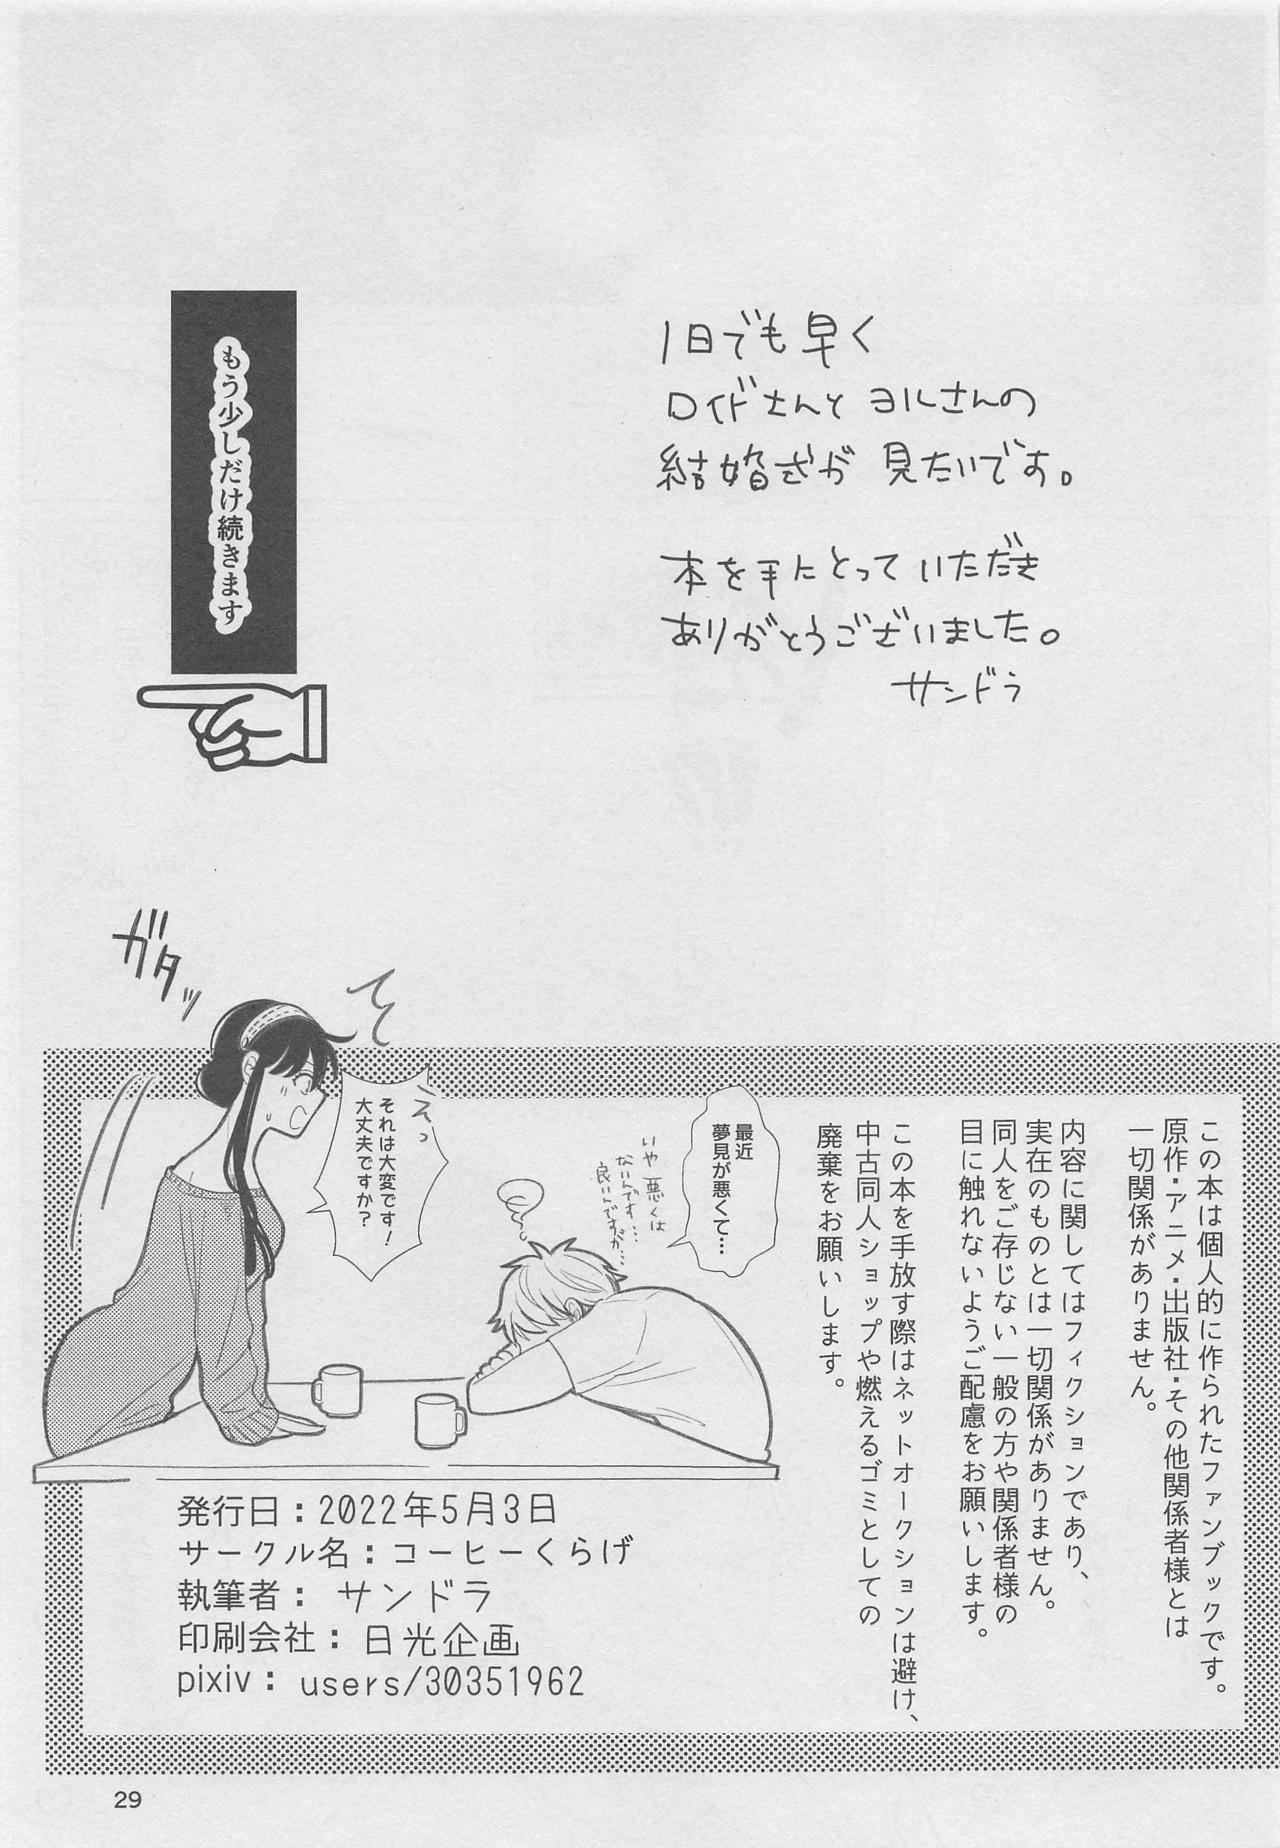 1日でも早く
ロイドさんとヨルさんの
結婚式が見たいです。
本を手にとっていただき
ありがとうございました。
サンドラ
もう少しだけ続きます
この本は個人的に作られたファンブックです。
原作・アニメ・出版社・その他関係者様とは
一切関係がありません。
内容に関してはフィクションであり、
実在のものとは一切関係がありません。
同人をご存じない一般の方や関係者様の
目に触れないようご配慮をお願いします。
この本を手放す際はネットオークションは避け、
中古同人ショップや燃えるゴミとしての
廃棄をお願いします。
最近
夢見が悪くて…
いや悪くは
ないんです…
良いんですが…
えっ
それは大変です!
大丈夫ですか?
ガタッ
発行日：2022年5月3日
サークル名：コーヒーくらげ
執筆者： サンドラ
印刷会社： 日光企画
pixiv： users/30351962
29